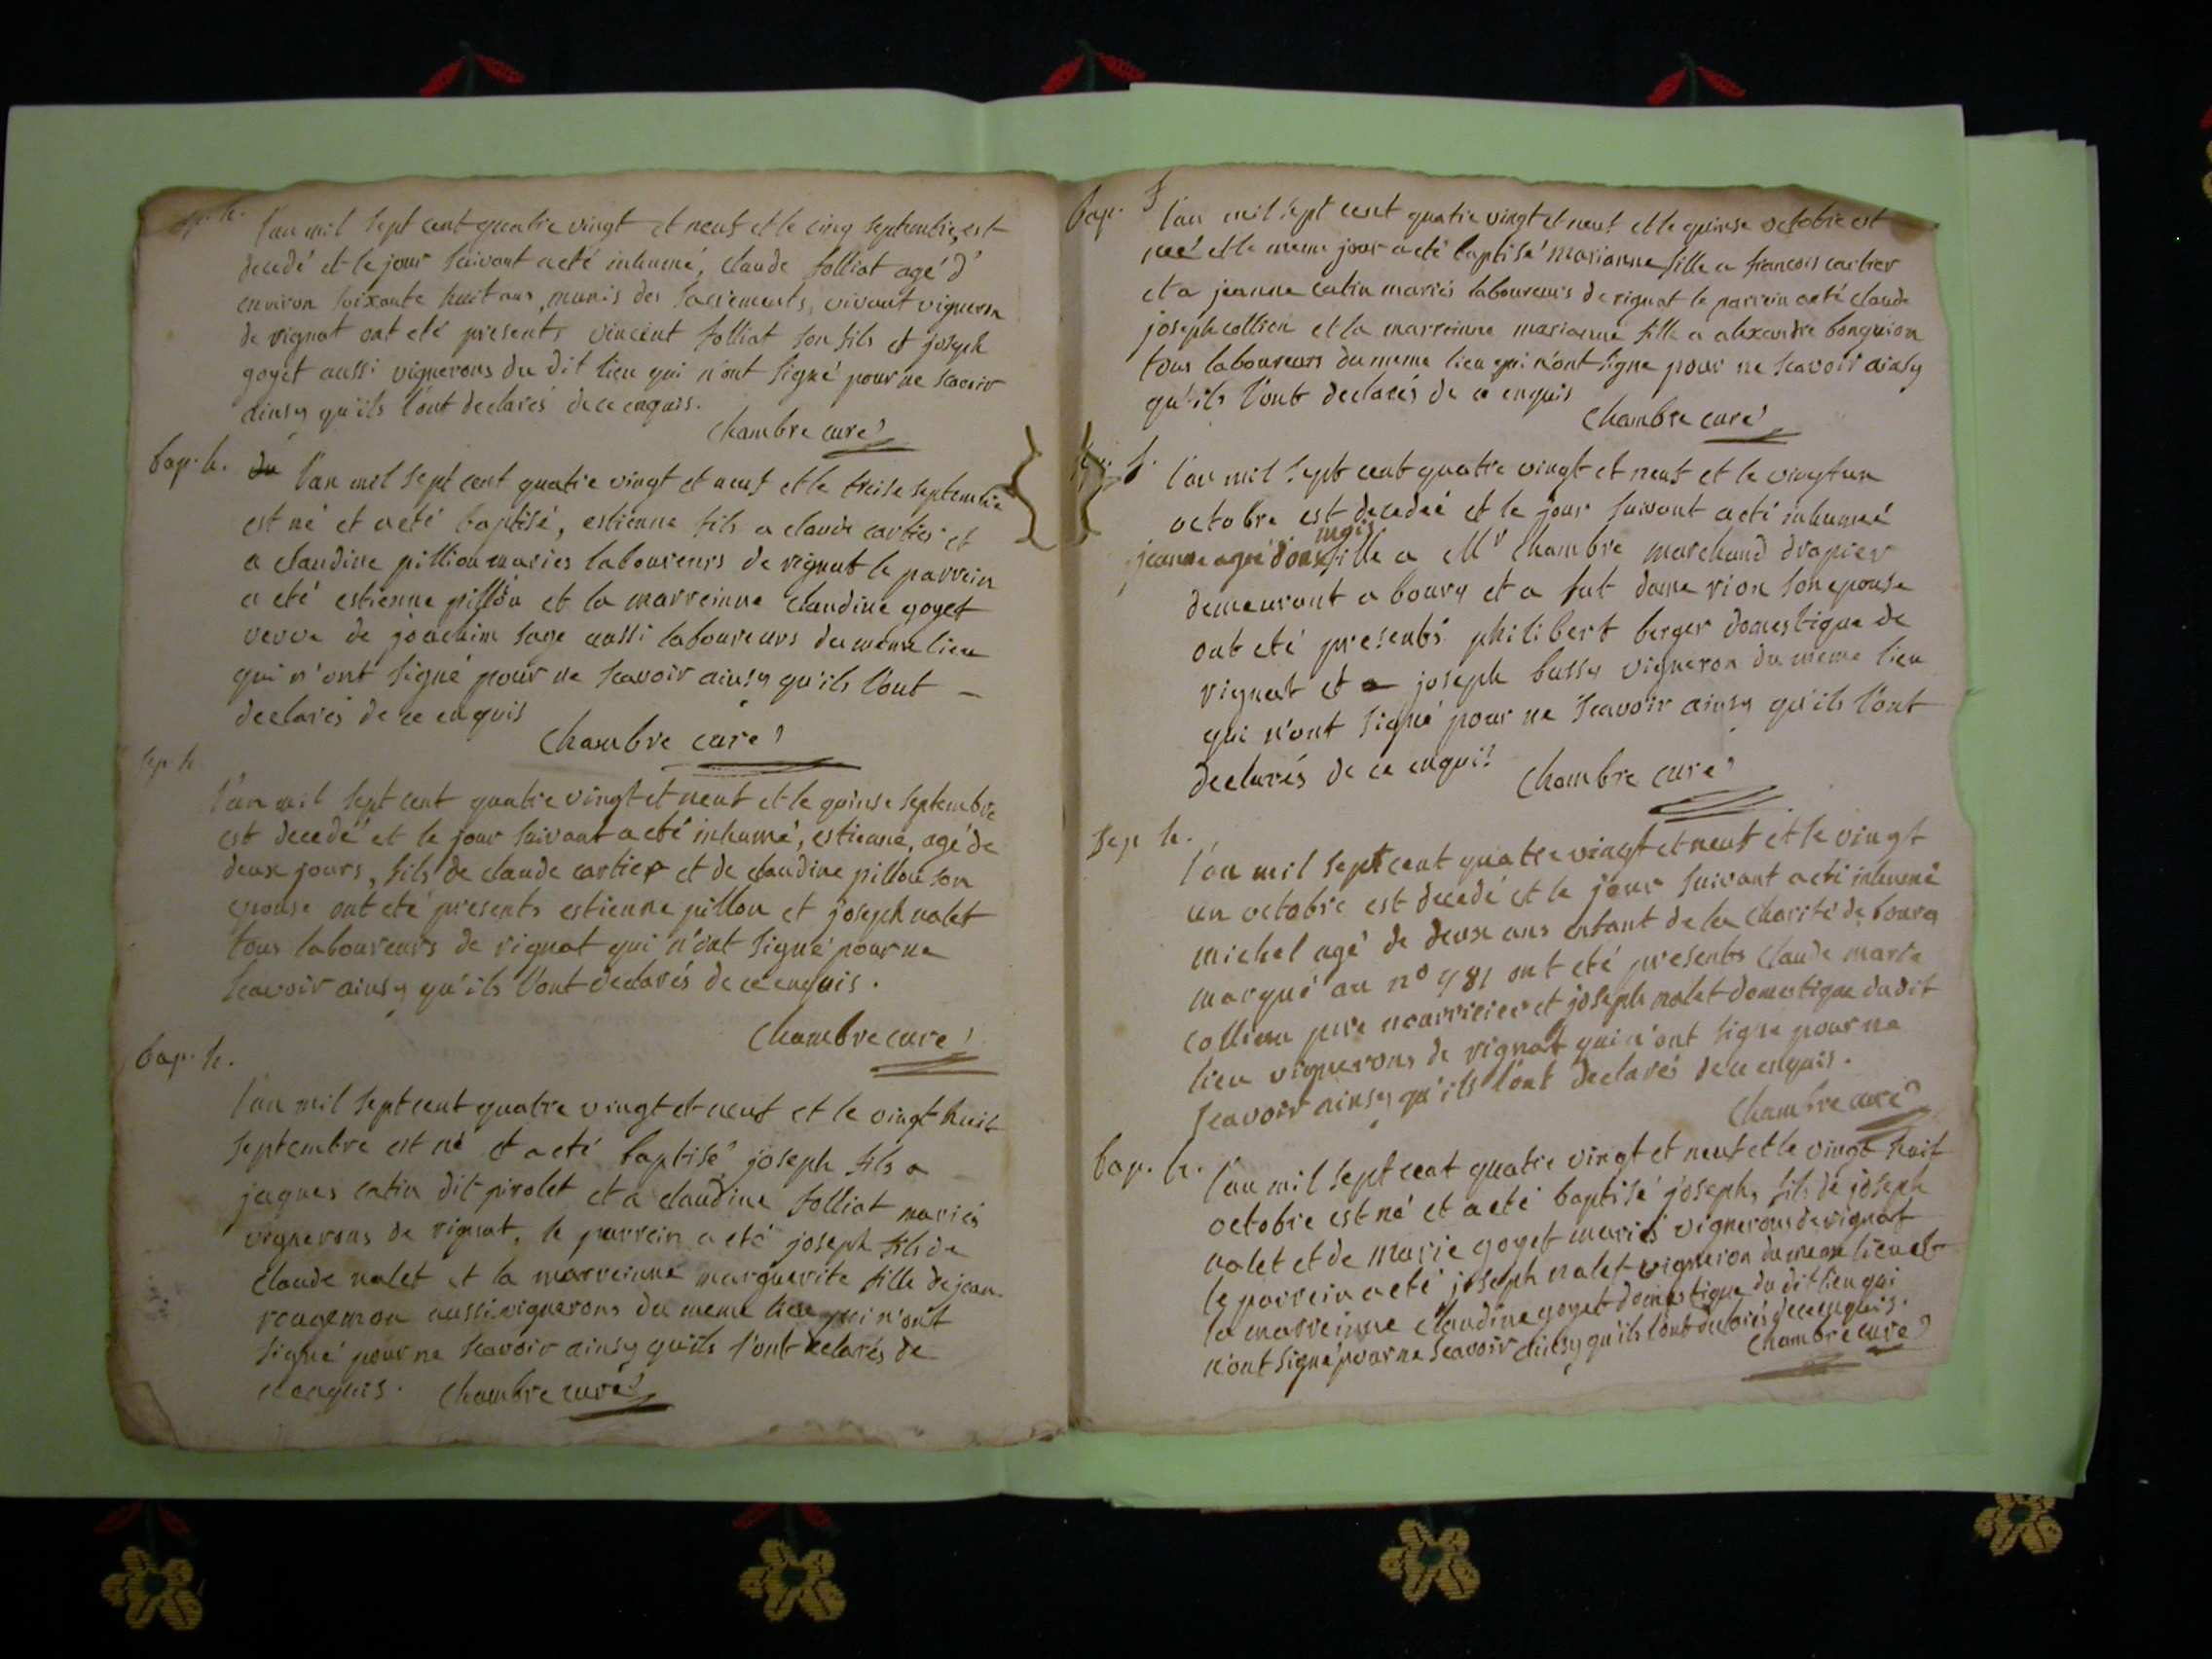 sep. h.
l'an mil sept cent quatre vingt et neuf et le cinq septembre, est
decedé et le jour suivant a eté inhumé, claude folliat agé d'
environ soixante huit ans, munis des sacrements, vivant vigneron
de rignat ont eté presents vincent folliat son fils et joseph
goyet aussi vignerons du dit lieu qui n'ont signé pour ne scavoir
ainsy qu'ils l'ont declarés de ce enquis.
Chambre curé
bap. h.
du l'an mil sept cent quatre vingt et neuf et le treise septembre
est né et a eté baptisé, estienne fils a claude cartier et
a claudine pillion mariés laboureurs de rignat le parrein
a eté estienne pillon et la marreinne claudine goyet
veuve de joachim sage aussi laboureurs du meme lieu
qui n'ont signé pour ne scavoir ainsy qu'ils l'ont
declarés de ce enquis
Chambre curé
sep h
l'an mil sept cent quatre vingt et neuf et le quinse septembre
est decedé et le jour suivant a eté inhumé, estienne, agé de
deux jours, fils de claude cartier et de claudine pillon son
epouse ont eté presents estienne pillon et joseph nalet
tous laboureurs de rignat qui n'ont signé pour ne
scavoir ainsy qu'ils l'ont declarés de ce enquis.
Chambre curé
bap. h.
l'an mil sept cent quatre vingt et neuf et le vingt huit
septembre est né et a eté baptisé joseph fils a
jaques catin dit pirolet et a claudine folliat mariés
vignerons de rignat, le parrein a eté joseph fils de
claude nalet et la marreinne marguerite fille de jean
rougemon aussi vignerons du meme lieu qui n'ont
signé pour ne scavoir ainsy qu'ils l'ont declarés de
ce enquis. Chambre curé
bap. f
l'an mil sept cent quatre vingt et neuf et le quinse octobre est
neé et le meme jour a eté baptisé marianne fille a francois cartier
et a jeanne catin mariés laboureurs de rignat le parrein a eté claude
joseph collien et la marreinne marianne fille a alexandre
tous laboureurs du meme lieu qui n'ont signe pour ne scavoir ainsy
qu'ils l'ont declarés de ce enquis
Chambre curé
f.
l'an mil sept cent quatre vingt et neuf et le vingt un
octobre est decedeé et le jour suivant a eté inhumeé
mois
jeanne ageé d'onse fille a Mr Chambre marchand drapier
demeurant a bourg et a fut dame rion son epouse
ont eté presents philibert berger domestique de
rignat et a joseph bussy vigneron du meme lieu
qui n'ont signé pour ne scavoir ainsy qu'ils l'ont
declarés de ce enquis
Chambre curé
sep h.
l'an mil sept cent quatre vingt et neuf et le vingt
un octobre est decedé et le jour suivant a eté inhumé
michel agé de deux ans enfant de la charité de bourg
marqué au no 981 ont eté presents claude marie
collien pere nourricier et joseph nalet domestique du dit
lieu vignerons de rignat qui n'ont signe pour ne
scavoir ainsy qu'ils l'ont declarés de ce enquis.
Chambre curé
bap. h.
l'an mil sept cent quatre vingt et neuf et le vingt huit
octobre est né et a eté baptisé joseph, fils de joseph
nalet et de marie goyet mariés vignerons de rignat
le parrein a eté joseph nalet vigneron du meme lieu et
la marreinne claudine goyet domestique du dit lieu qui
n'ont signé pour ne scavoir ainsy qu'ils l'ont declarés de ce enquis.
Chambre curé